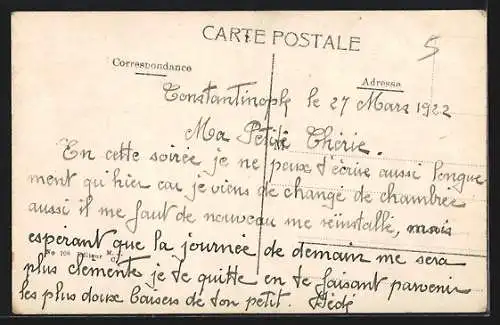 CARTE POSTALE
5
Correspondance
Adresse
Constantinople le 27 Mars 1922
Ma Petite Chérie.
En cette soirée je ne peux t'écrire aussi longue
ment qu'hier car je viens de changé de chambrée
aussi il me faut de nouveau me réinstallé, mais
espérant que la journée de demain me sera
No 108 Editeur M.
plus clémente je te quitte en te faisant parvenir
les plus doux baisers de ton petit. Dédé